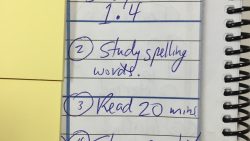 1.4
② Study spelling
words.
③ Read 20 mins